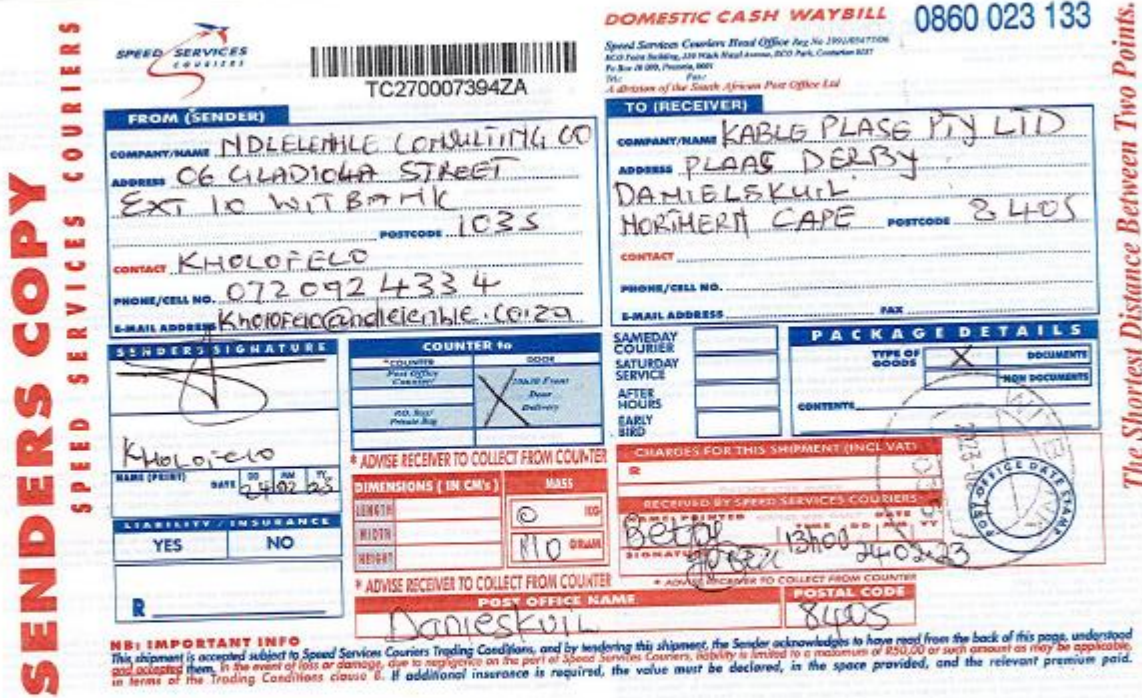 SENDERS COPY
SPEED SERVICES COURIERS
SPEED SERVICES
COURIERS
TC270007394ZA
DOMESTIC CASH WAYBILL
0860 023 133
Speed Services Couriers Head Office Reg No
A division of the South African Post Office Ltd
The Shortest Distance Between Two Points.
FROM (SENDER)
COMPANY/NAME NDLELENHLE CONSULTING CO
ADDRESS 06 GLADIOLA STREET
EXT 10 WITBANK
POSTCODE 1035
CONTACT KHOLOFELO
PHONE/CELL NO. 072 092 4334
E-MAIL ADDRESS Kholofelo@ndlelenhle.co.za
TO (RECEIVER)
COMPANY/NAME KABLE PLASE PTY LTD
ADDRESS PLAAS DERBY
DANIELSKUIL
NORTHERN CAPE POSTCODE 8405
CONTACT
PHONE/CELL NO.
E-MAIL ADDRESS FAX
SENDERS SIGNATURE
Kholofelo
NAME (PRINT) DATE DD MM YY
24 02 23
LIABILITY / INSURANCE
YES NO
R
COUNTER to
*COUNTER DOOR
Post Office
Counter/
P.O. Box/
Private Bag
Door
Delivery
X
* ADVISE RECEIVER TO COLLECT FROM COUNTER
DIMENSIONS (IN CM's) MASS
LENGTH 0 KG
WIDTH
HEIGHT GRAM
* ADVISE RECEIVER TO COLLECT FROM COUNTER
SAMEDAY
COURIER
SATURDAY
SERVICE
AFTER
HOURS
EARLY
BIRD
PACKAGE DETAILS
TYPE OF
GOODS X DOCUMENTS
NON DOCUMENTS
CONTENTS
CHARGES FOR THIS SHIPMENT (INCL VAT)
R
RECEIVED BY SPEED SERVICES COURIERS
NAME PRINTED TIME DATE DD MM YY
13h00 24 02 23
SIGNATURE
POST OFFICE DATE STAMP
* ADVISE RECEIVER TO COLLECT FROM COUNTER
POST OFFICE NAME POSTAL CODE
Danieskuil 8405
NB: IMPORTANT INFO
This shipment is accepted subject to Speed Services Couriers Trading Conditions, and by tendering this shipment, the Sender acknowledges to have read from the back of this page, understood
and accepted them. In the event of loss or damage, due to negligence on the part of Speed Services Couriers, liability is limited to a maximum of R50,00 or such amount as may be applicable,
in terms of the Trading Conditions clause 8. If additional insurance is required, the value must be declared, in the space provided, and the relevant premium paid.